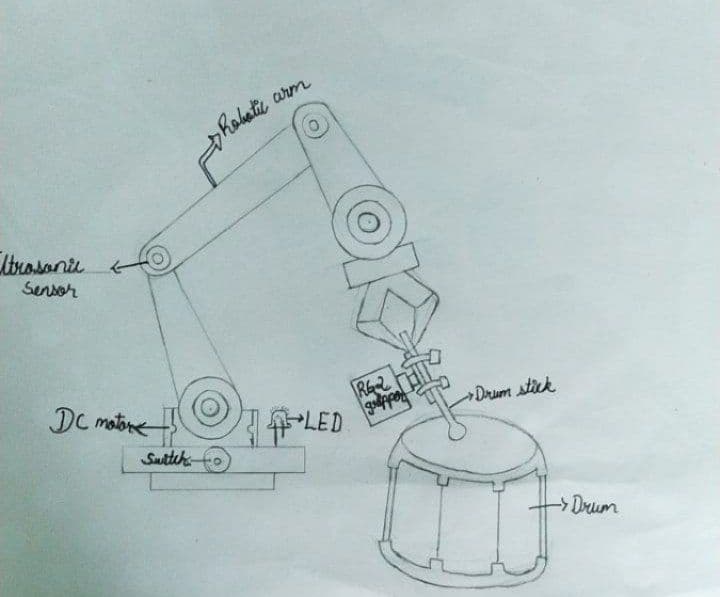 Robotic arm
ltrasonic
Sensor
RG-2
gripper
Drum stick
DC motor
LED
Switch
Drum